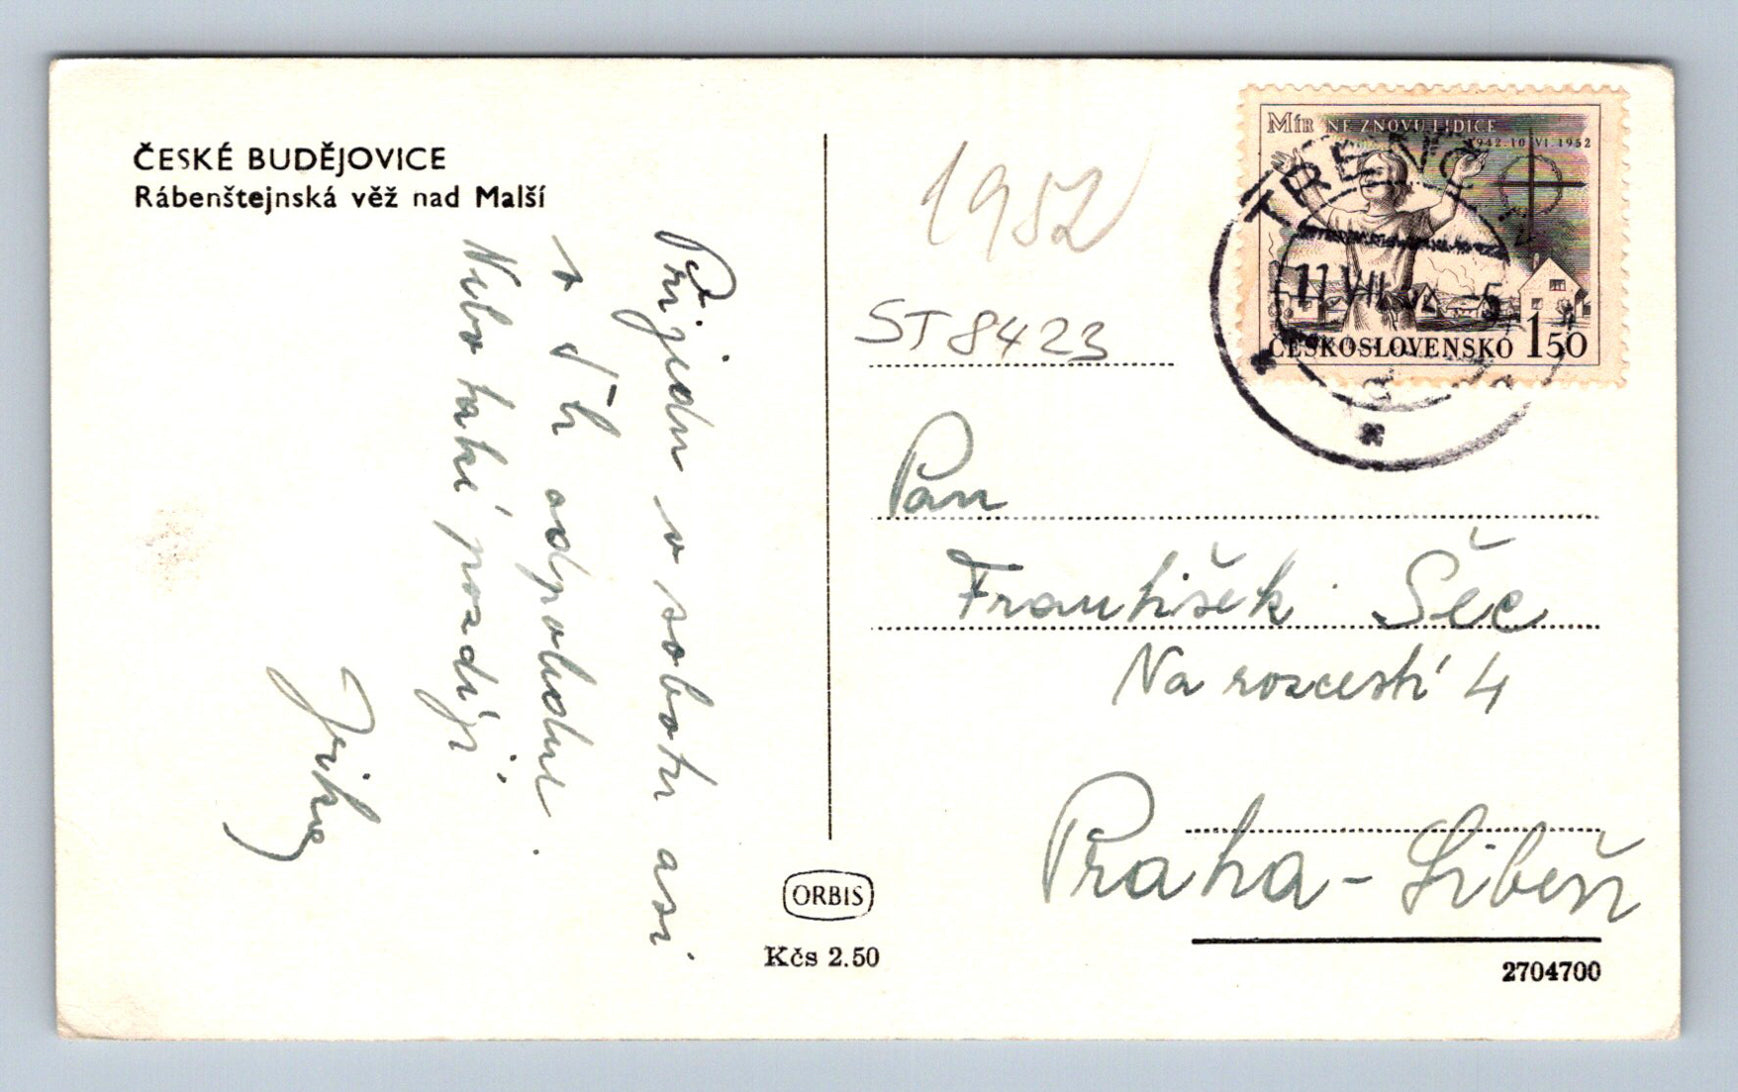 ČESKÉ BUDĚJOVICE
Rábenštejnská věž nad Malší
Přijedu v sobotu asi
v 5 h odpoledne.
Nebo také později
Jirka
ORBIS
Kčs 2.50
1952
ST8423
MÍR NE ZNOVU LIDICE
1942.10.VI.1952
ČESKOSLOVENSKO 1.50
11.VII.52 -5
a
Pan
František Šéc
Na rozcestí 4
Praha-Libeň
2704700